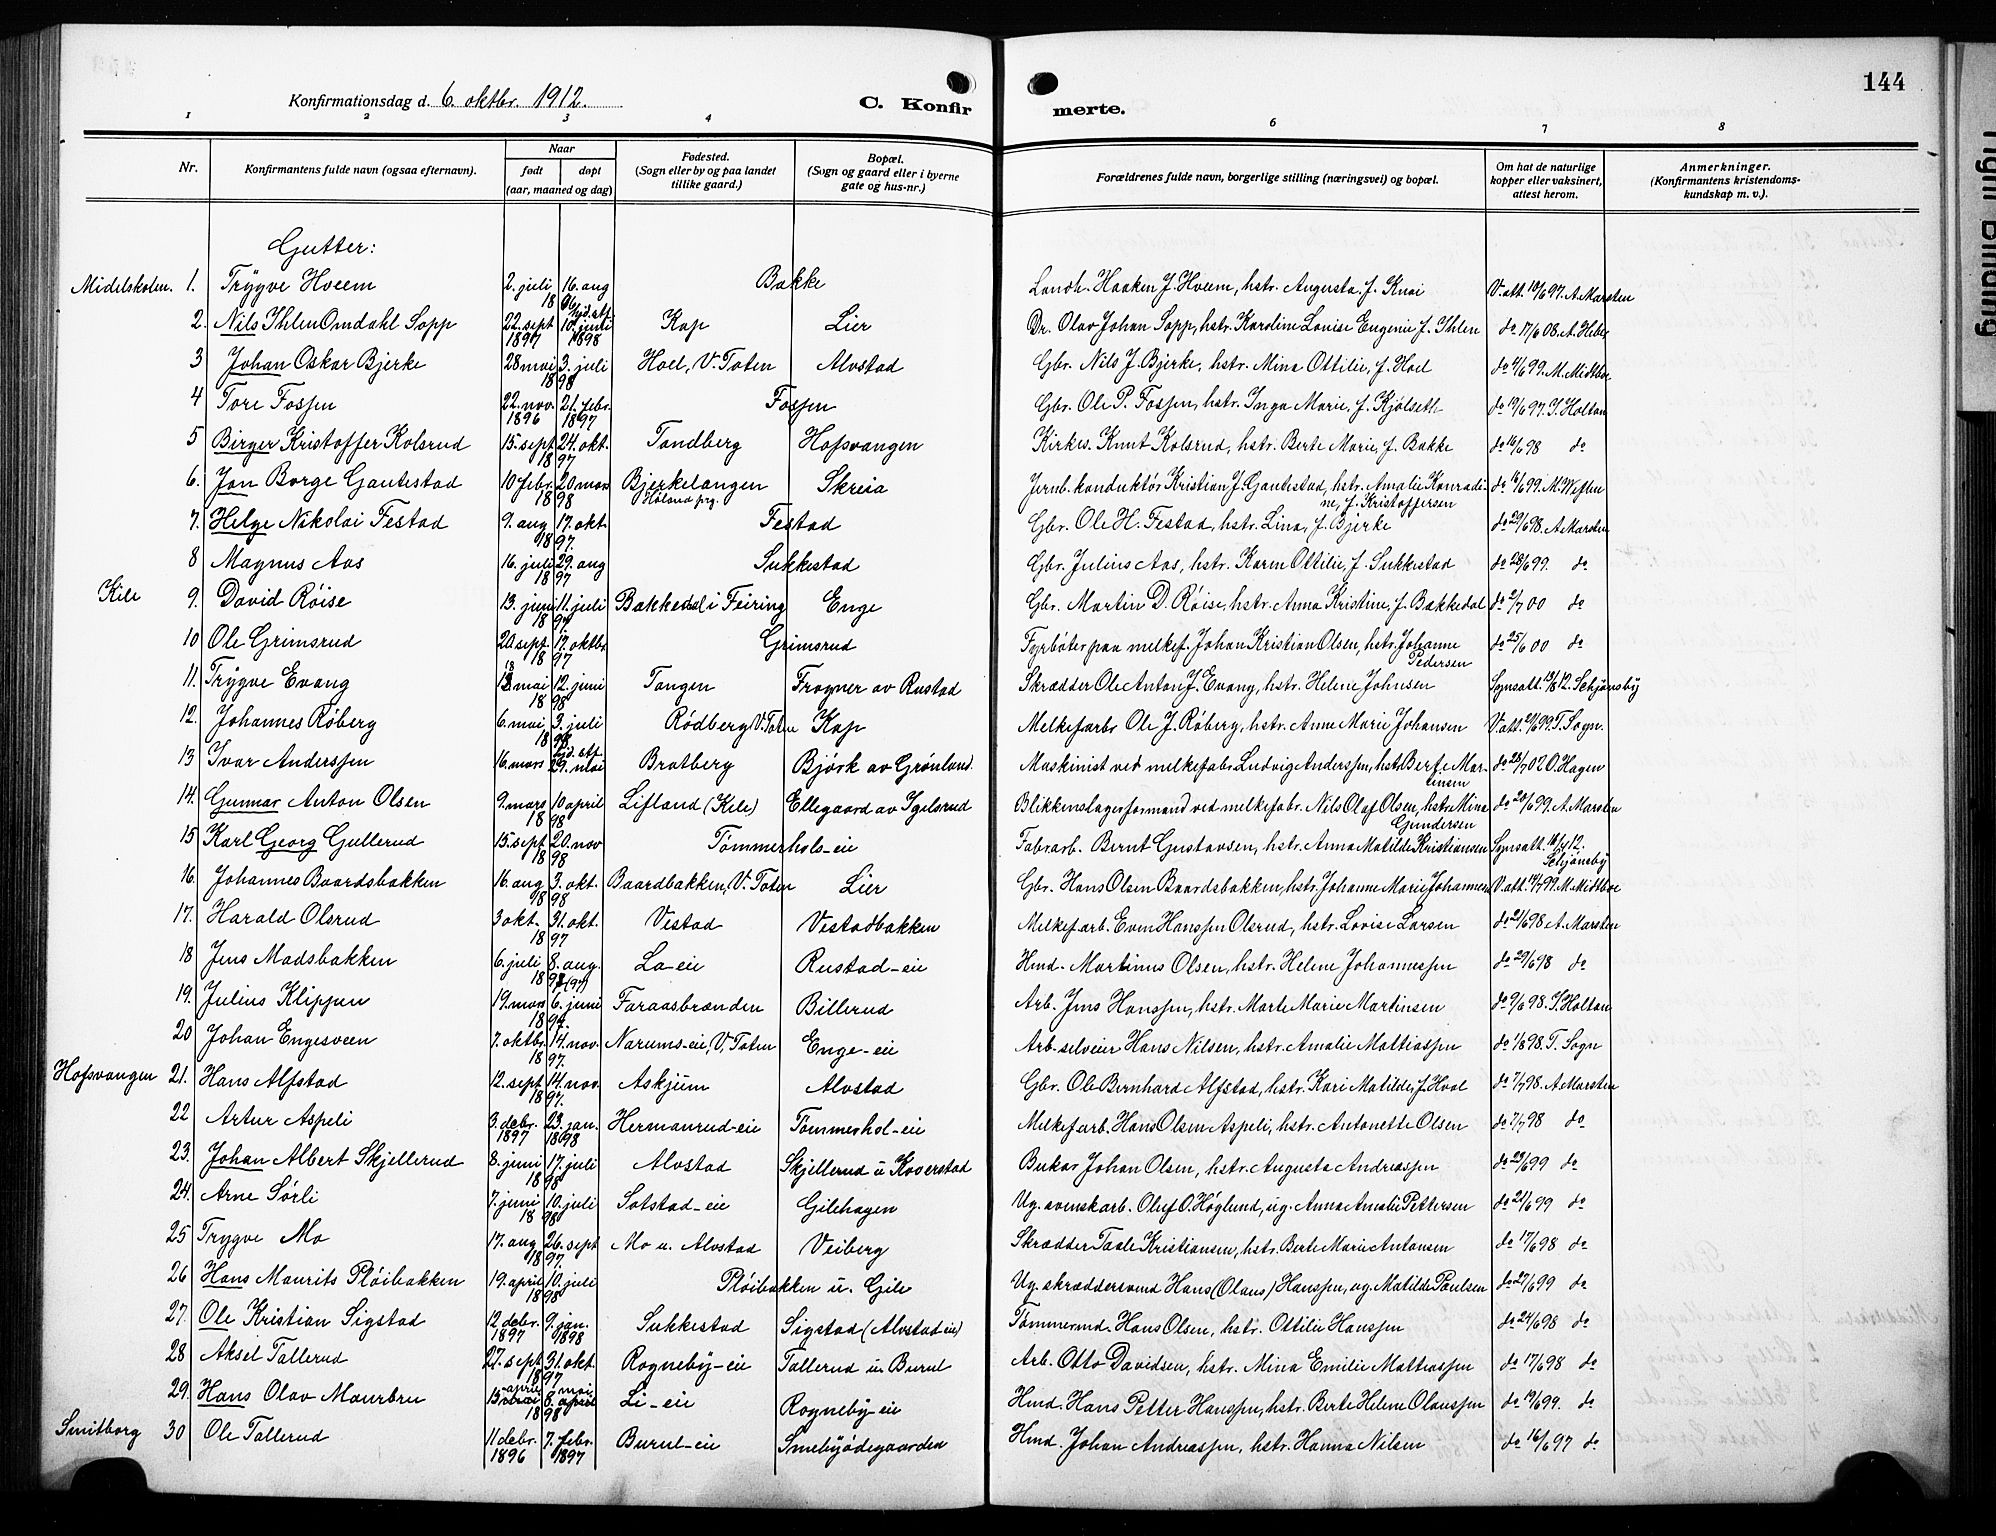 144
Konfirmationsdag d. 6. oktbr. 1912.
C. Konfirmerte.
1 2 3 4 6 7 8
Nr. | Konfirmantens fulde navn (ogsaa efternavn). | Naar født døpt (aar, maaned og dag) | Fødested. (Sogn eller by og paa landet tillike gaard.) | Bopæl. (Sogn og gaard eller i byerne gate og hus-nr.) | Forældrenes fulde navn, borgerlige stilling (næringsvei) og bopæl. | Om hat de naturlige kopper eller vaksinert, attest herom. | Anmerkninger. (Konfirmantens kristendomskundskap m. v.).
Gutter:
Midelskolen. 1. Trygve Hveem 2. juli 16. aug 1896 Bakke Landh. Haaken J. Hveem, hstr. Augusta f. Knai V. att. 10/6 97. A. Marsten
2. Nils Ihlen Omdahl Sopp 22. sept 1897 10. juni 1898 Kap Lier Dr. Olav Johan Sopp, hstr. Karoline Louise Eugenie f. Ihlen do 17/6 08. A.
3 Johan Oskar Bjerke 28 mai 3. juli 1898 Hoel, V. Toten Alvstad Gbr. Nils J. Bjerke, hstr. Mina Ottilie, f. Hoel do 4/6 99. M. Midtboe
4 Tore Fossen 22. nov. 1896 21. febr. 1897 Fossen Gbr. Ole P. Fossen, hstr. Inga Marie, f. Kjölseth do 19/6 97. I. Holtan
5 Birger Kristoffer Kolsrud 15. sept 24. okt. 1897 Tandberg Hofsvangen Kirkes. Knut Kolsrud, hstr. Berte Marie, f. Bakke do 16/6 98 do
6. Jan Borge Gautestad 10 febr. 20 mars 1898 Bjerkelangen Høland prg. Skreia Jernb. konduktör Kristian J. Gautestad, hstr. Amalie Konradine, f. Kristoffersen do 16/6 99. M.
7. Helge Nikolai Festad 9. aug 17. okt. 1897. Festad Gbr. Ole H. Festad, hstr. Lina, f. Bjerke do 29/6 98. A. Marsten
8 Magnus Aas 16. juli 29. aug 1897 Sukkestad Gbr. Julius Aas, hstr. Karen Ottilie, f. Sukkestad do 28/6 99. do
Kile 9. David Röise 13. juni 11. juli 1897 Bakkedal i Feiring Enge Gbr. Martin D. Röise, hstr. Anna Kristine, f. Bakkedal do 2/7 00 do
10 Ole Grimsrud 20. sept 17. oktbr 1897 Grimsrud Fyrböter paa melkef. Johan Kristian Olsen, hstr. Johanne Pedersen do 25/6 00 do
11. Trygve Evang mai 12. juni 1898 Tangen Frogner av Rustad Skrædder Ole Anton J. Evang, hstr. Helene Johnsen Synsatt. 13/8 12. Schjønsby
12. Johannes Röberg 6. mai 3. juli 1898 Rödberg, V. Toten Kap Melkefarbr Ole J. Röberg, hstr. Anne Marie Johansen V. att. 21/6 99 T. Sogn.
13 Ivar Anderssen 16. mars 29. mai Bratberg Björk av Grönland. Maskinist ved melkefabr. Ludvig Anderssen, hstr. Berte Martinsen do 25/7 02 O. Hagen
14. Gunnar Anton Olsen 9. mars 10 april 1898 Lifland (Kile) Ellegaard av Igelsrud Blikkenslagerformand ved melkefabr. Nils Olaf Olsen, hstr. Mina Gundersen do 20/6 99. A. Marsten
15 Karl Georg Gullerud 15. sept 20. nov 1898 Tömmerhols-eie Fabrarb. Bernt Gustavsen, hstr. Anna Matilde Kristiansen Synsatt. 12. Schjønsby
16. Johannes Baardsbakken 16. aug 3. okt. 1898 Baardbakken, V. Toten Lier Gbr. Hans Olsen Baardsbakken, hstr. Johanne Marie Johannesen V. att. 11/7 99. M. Midtboe
17. Harald Olsrud 3 okt. 31. okt. 1897 Vestad Vestadbakken Melkefarb. Even Hanssen Olsrud, hstr. Lovise Larsen do 21/6 98 A. Marsten
18 Jens Madsbakken 6. juli 8. aug. 1897 (97) La-eie Rustad-eie Hmd. Martinus Olsen, hstr. Helene Johannessen do 29/6 98 do
19. Julius Klippen 19. mars 6. juni 1897. Faraasbrænden Billerud Arb. Jens Hanssen, hstr. Marte Marie Martinsen do 9/6 98. I. Holtan
20 Johan Engesveen 7. oktbr. 14. nov. 1897. Narums-eie, V. Toten Enge-eie Arb. selveier Hans Nilsen, hstr. Amalie Mattiassen do 1/8 98. T. Sogn
Hofsvangen 21. Hans Alfstad 12. sept 14. nov. 1897. Askjum Alvstad Gbr. Ole Bernhard Alfstad, hstr. Kari Matilde, f. Hval do 7/7 98. A. Marsten
22 Artur Aspeli 3. debr. 1897 23. jan. 1898 Hermanrud-eie Tömmerhol-eie Melkefarb. Hans Olsen Aspeli, hstr. Antonette Olsen do 7/7 98 do
23. Johan Albert Skjellerud 8. juni 17. juli 1898 Alvstad Skjellerud u Koverstad Bukar Johan Olsen, hstr. Augusta Andreassen do 23/6 99 do
24. Arne Sörli 7. juni 10. juli 1898. Sotstad-eie Gilehagen Ug. svensk arb. Oluf O. Höglund, ug. Anna Amalie Pettersen do 21/6 99 do
25 Trygve Mo 17. aug 26. sept 1897. Mo u. Alvstad Veiberg Skrædder Taale Kristiansen, hstr. Berte Marie Antonsen do 17/6 98 do
26 Hans Maurits Plöibakken 19. april 10. juli 1898 Plöibakken u. Gile Ug. skræddersvend Hans (Olaus) Hanssen, ug. Matilde Paulsen do 27/6 99 do
27. Ole Kristian Sigstad 12 debr. 1897 9. jan. 1898 Sukkestad Sigstad (Alvstad eie) Tömmermd. Hans Olsen, hstr. Ottilie Hanssen do 24/6 98 do
28 Aksel Tallerud 27. sept 31. okt. 1897 Rogneby-eie Tallerud u Burul Arb. Otto Davidsen, hstr. Mina Emilie Mattiassen do 17/6 98 do
29. Hans Olav Maurbru 15 april 8. mai 1898 Li-eie Rogneby-eie Hmd. Hans Petter Hanssen, hstr. Berte Helene Olaussen do 19/6 99. do
Smitborg 30 Ole Tallerud 11 debr. 1896 7. febr. 1897 Burul-eie Smebyödegaarden Hmd. Johan Andreassen, hstr. Hanna Nilsen do 16/6 97 do